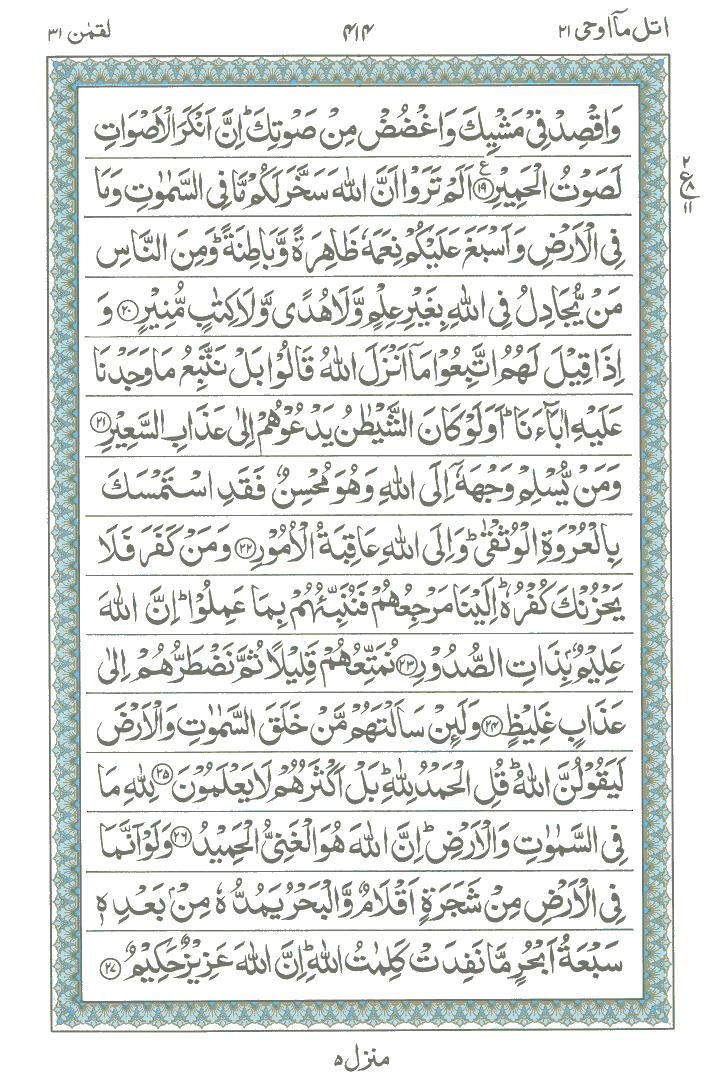 اتل مآ اوحی ۲۱ ۴۱۴ لقمٰن ۳۱
وَاقْصِدْ فِیْ مَشْیِكَ وَاغْضُضْ مِنْ صَوْتِكَ ؕ اِنَّ اَنْكَرَ الْاَصْوَاتِ
لَصَوْتُ الْحَمِیْرِ ﴿۱۹﴾ ع اَلَمْ تَرَوْا اَنَّ اللّٰهَ سَخَّرَ لَكُمْ مَّا فِی السَّمٰوٰتِ وَمَا
۲ ع ۸ ۱۱
فِی الْاَرْضِ وَاَسْبَغَ عَلَیْكُمْ نِعَمَهٗ ظَاهِرَةً وَّبَاطِنَةً ؕ وَمِنَ النَّاسِ
مَنْ یُّجَادِلُ فِی اللّٰهِ بِغَیْرِ عِلْمٍ وَّلَا هُدًی وَّلَا كِتٰبٍ مُّنِیْرٍ ﴿۲۰﴾ وَ
اِذَا قِیْلَ لَهُمُ اتَّبِعُوْا مَاۤ اَنْزَلَ اللّٰهُ قَالُوْا بَلْ نَتَّبِعُ مَا وَجَدْنَا
عَلَیْهِ اٰبَآءَنَا ؕ اَوَلَوْ كَانَ الشَّیْطٰنُ یَدْعُوْهُمْ اِلٰی عَذَابِ السَّعِیْرِ ﴿۲۱﴾
وَمَنْ یُّسْلِمْ وَجْهَهٗۤ اِلَی اللّٰهِ وَهُوَ مُحْسِنٌ فَقَدِ اسْتَمْسَكَ
بِالْعُرْوَةِ الْوُثْقٰی ؕ وَاِلَی اللّٰهِ عَاقِبَةُ الْاُمُوْرِ ﴿۲۲﴾ وَمَنْ كَفَرَ فَلَا
یَحْزُنْكَ كُفْرُهٗ ؕ اِلَیْنَا مَرْجِعُهُمْ فَنُنَبِّئُهُمْ بِمَا عَمِلُوْا ؕ اِنَّ اللّٰهَ
عَلِیْمٌۢ بِذَاتِ الصُّدُوْرِ ﴿۲۳﴾ نُمَتِّعُهُمْ قَلِیْلًا ثُمَّ نَضْطَرُّهُمْ اِلٰی
عَذَابٍ غَلِیْظٍ ﴿۲۴﴾ وَلَئِنْ سَاَلْتَهُمْ مَّنْ خَلَقَ السَّمٰوٰتِ وَالْاَرْضَ
لَیَقُوْلُنَّ اللّٰهُ ؕ قُلِ الْحَمْدُ لِلّٰهِ ؕ بَلْ اَكْثَرُهُمْ لَا یَعْلَمُوْنَ ﴿۲۵﴾ لِلّٰهِ مَا
فِی السَّمٰوٰتِ وَالْاَرْضِ ؕ اِنَّ اللّٰهَ هُوَ الْغَنِیُّ الْحَمِیْدُ ﴿۲۶﴾ وَلَوْ اَنَّمَا
فِی الْاَرْضِ مِنْ شَجَرَةٍ اَقْلَامٌ وَّالْبَحْرُ یَمُدُّهٗ مِنْۢ بَعْدِهٖ
سَبْعَةُ اَبْحُرٍ مَّا نَفِدَتْ كَلِمٰتُ اللّٰهِ ؕ اِنَّ اللّٰهَ عَزِیْزٌ حَكِیْمٌ ﴿۲۷﴾
منزل ۵